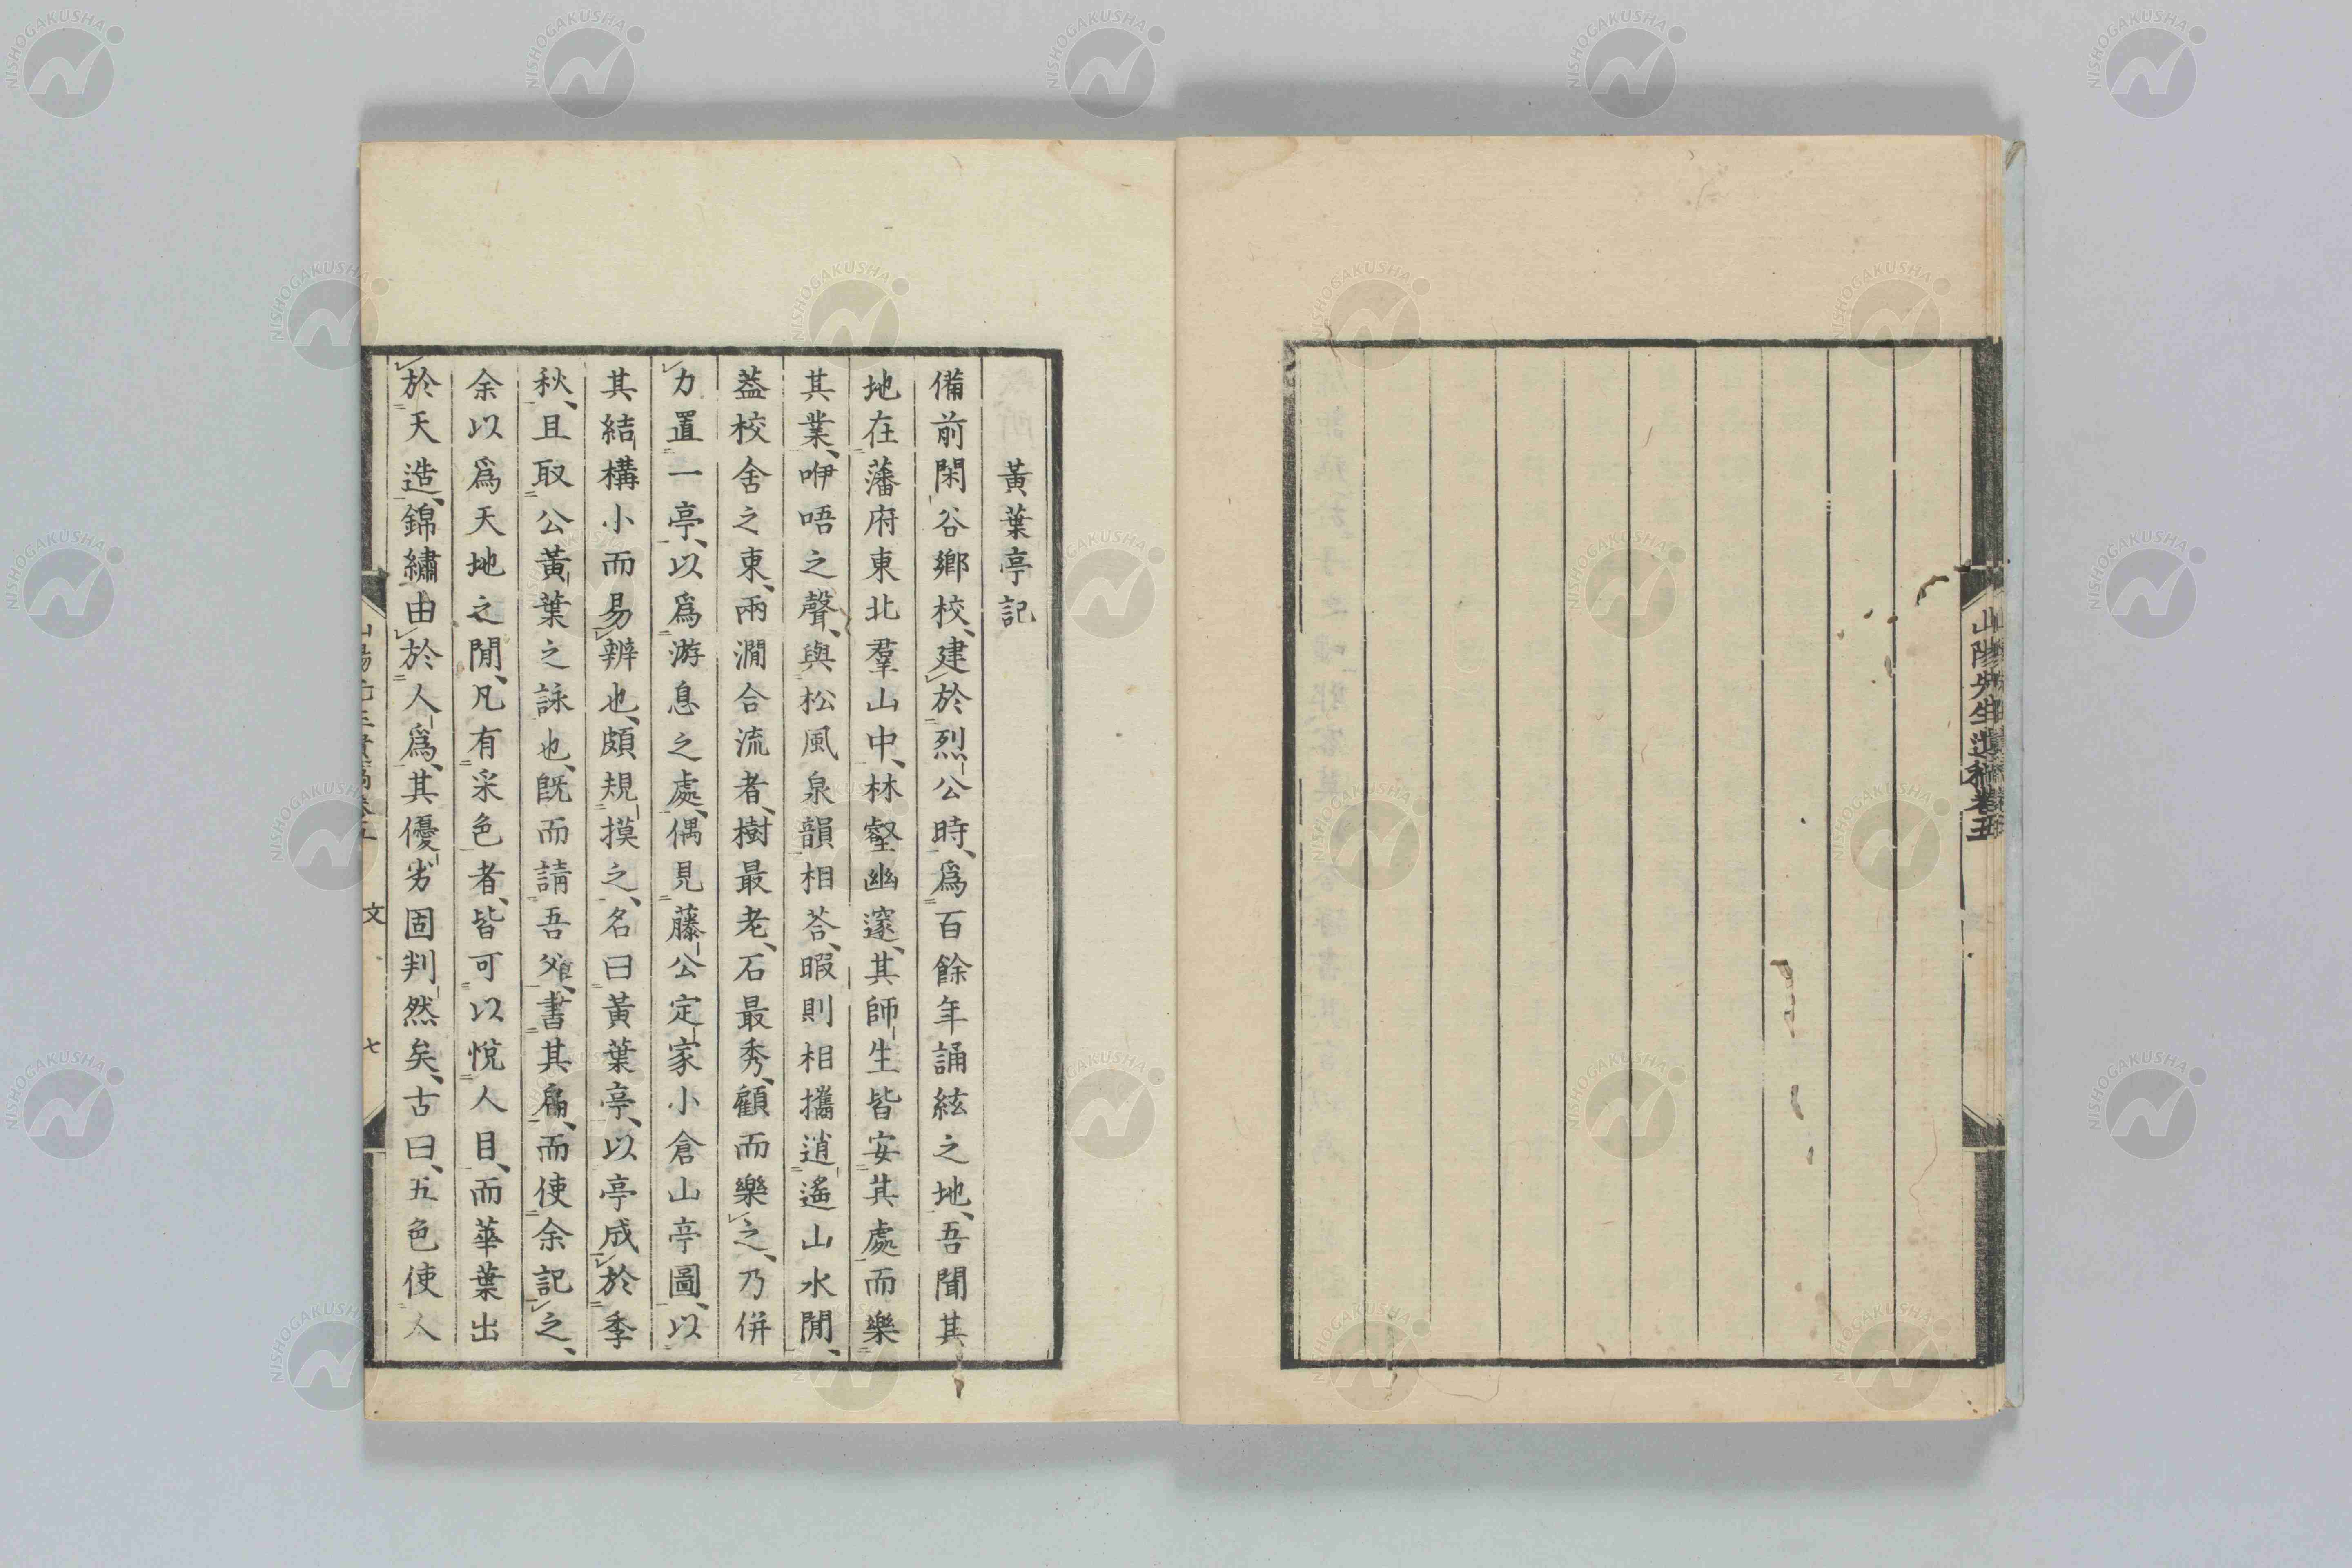 山陽先生遺稿卷五
黃葉亭記
備前閑谷鄉校、建於烈公時、爲百餘年誦絃之地、吾聞其
地在藩府東北羣山中、林壑幽邃、其師生皆安其處而樂
其業、咿唔之聲、與松風泉韻相荅、暇則相攜逍遙山水閒、
葢校舍之東、兩澗合流者、樹最老、石最秀、顧而樂之、乃併
力置一亭、以爲游息之處、偶見藤公定家小倉山亭圖、以
其結構小而易辨也、頗規摸之、名曰黃葉亭、以亭成於季
秋、且取公黃葉之詠也、旣而請吾父、書其扁、而使余記之、
余以爲天地之閒、凡有采色者、皆可以悅人目、而華葉出
於天造、錦繡由於人爲、其優劣固判然矣、古曰、五色使人
山陽先生遺稿卷五
文
七